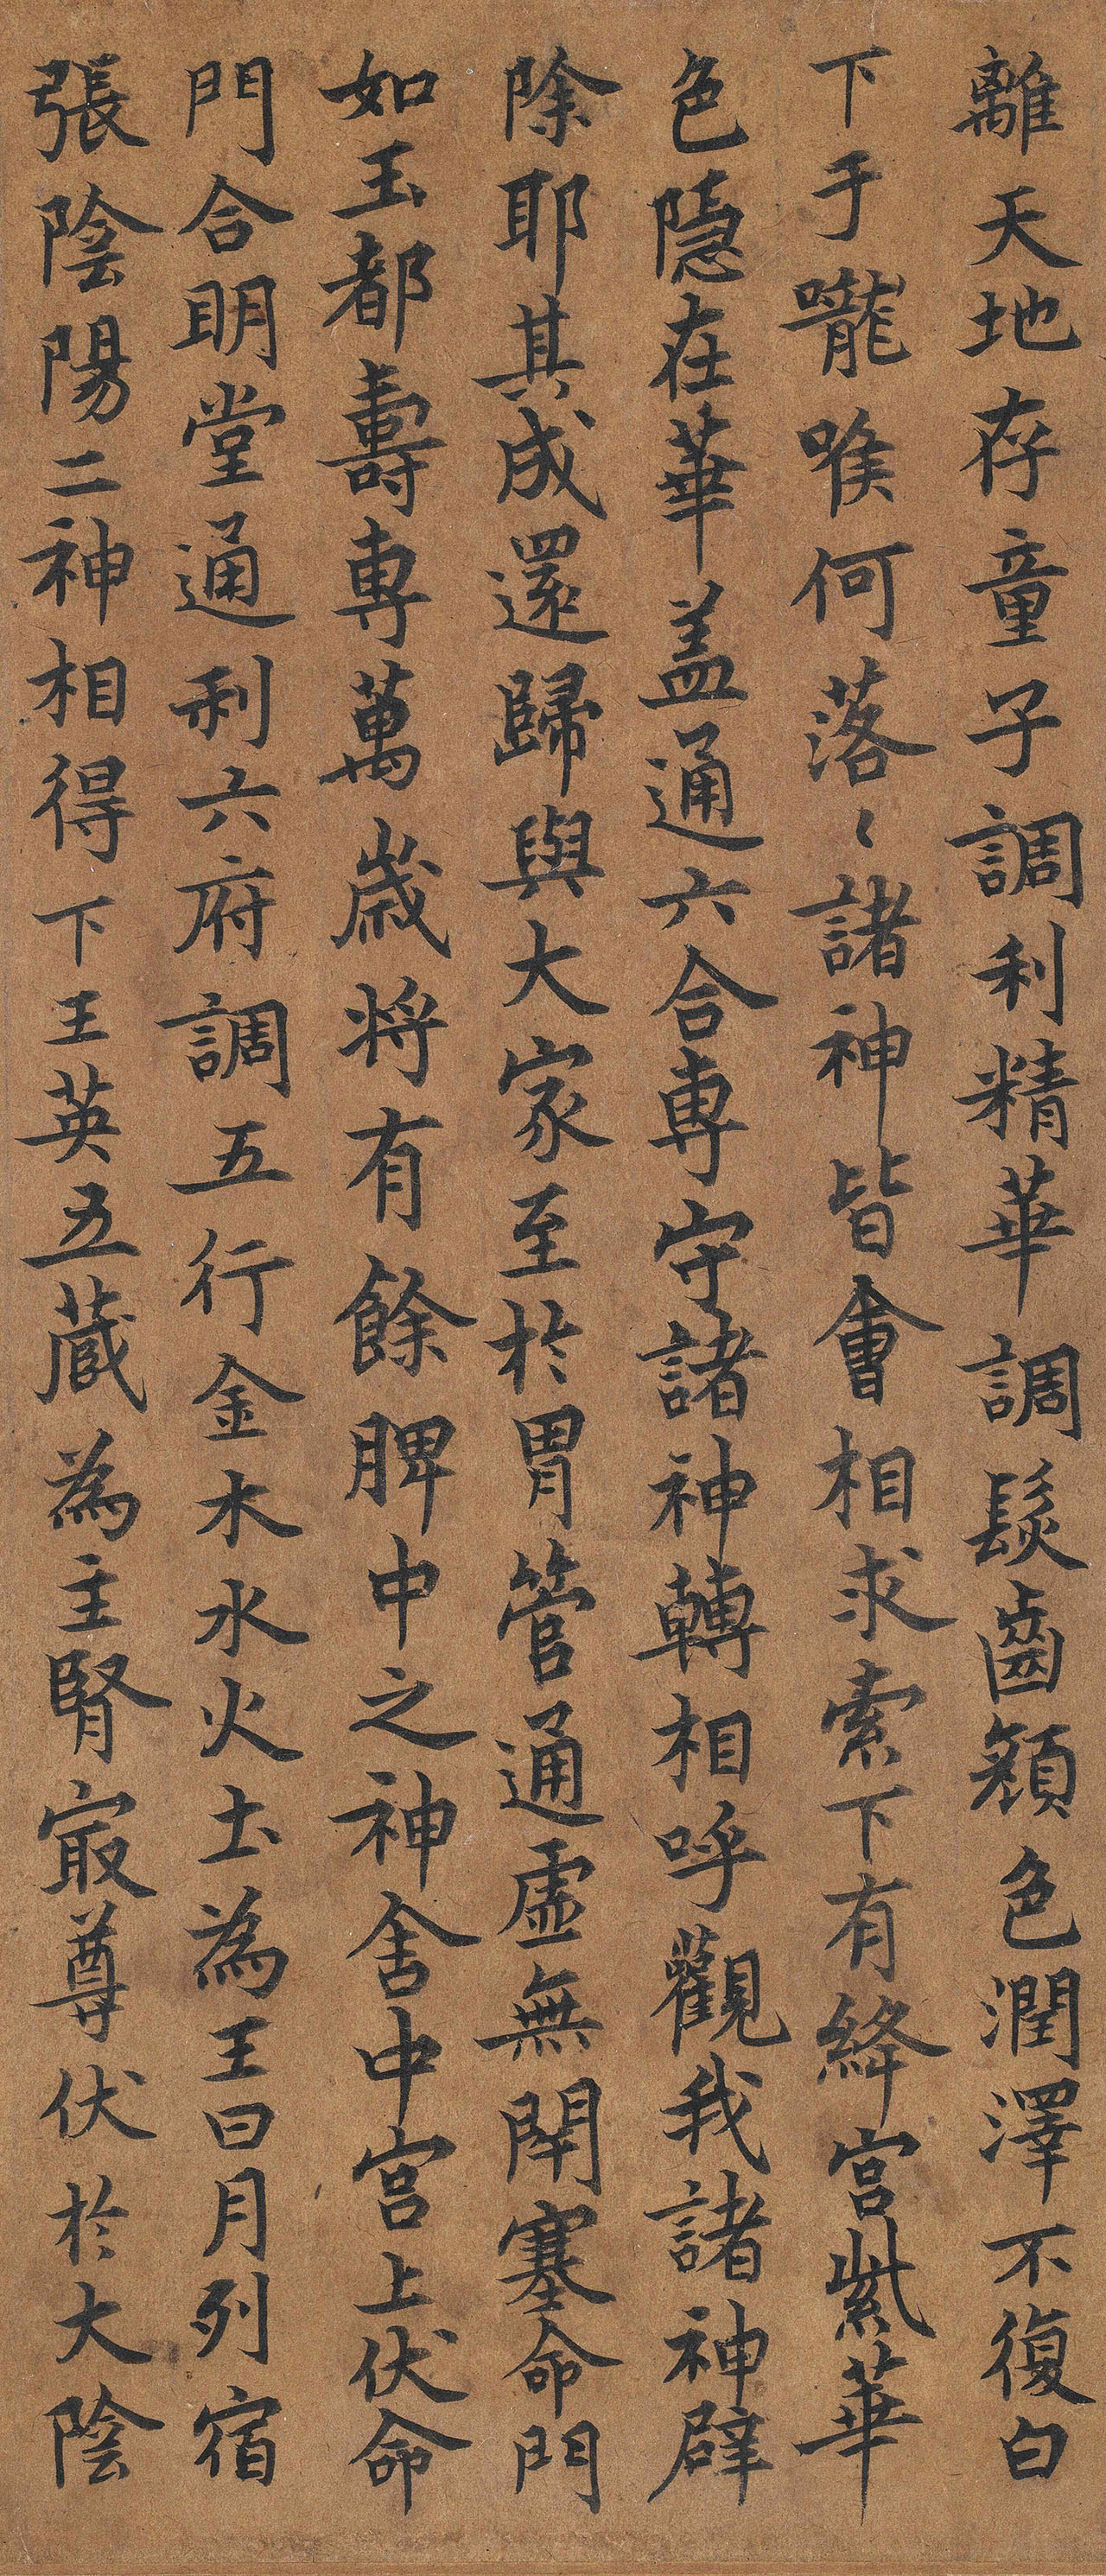 離天地存童子調利精華調髮齒顏色潤澤不復白
下于嚨喉何落〻諸神皆會相求索下有絳宮紫華
色隱在華盖通六合專守諸神轉相呼觀我諸神辟
除耶其成還歸與大家至於胃管通虛無閇塞命門
如玉都壽專萬歲将有餘脾中之神舍中宮上伏命
門合明堂通利六府調五行金木水火土為王日月列宿
張陰陽二神相得下王英五藏為主腎冣尊伏於大陰